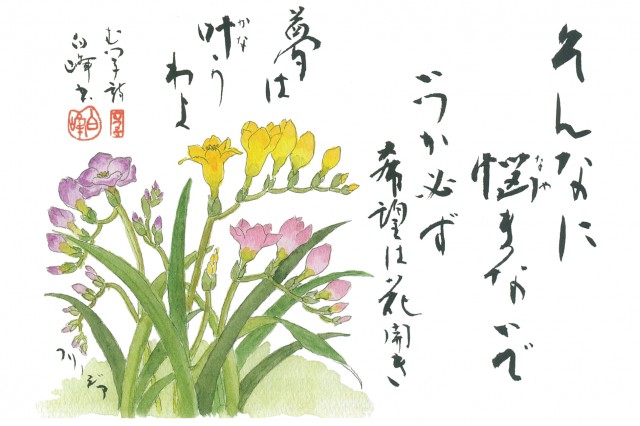 そんなに
悩まないで
なや
いつか必ず
希望は花開き
夢は
叶うわよ
かな
むつ子詩
白峰書
フリージア